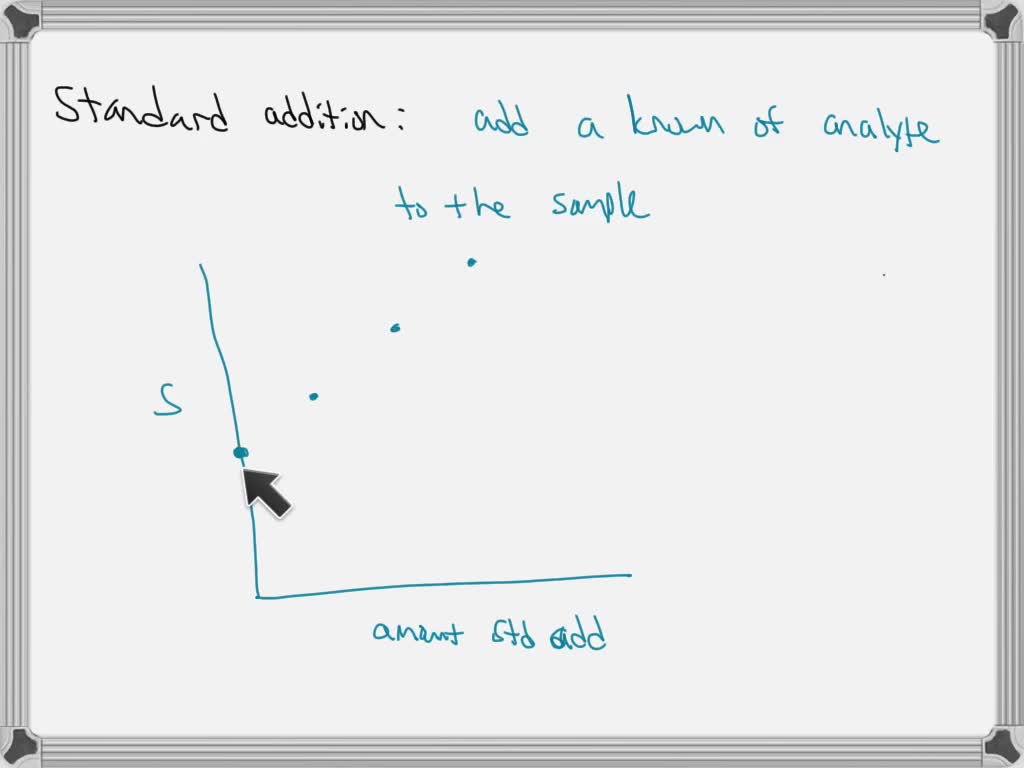 Standard addition: add a known of analyte
to the sample
S
amount std add